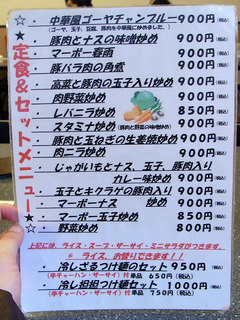 ★定食&セットメニュー★
☆ 中華風ゴーヤチャンプルー900円(税込)
(ゴーヤ、玉子、豆腐、豚肉を中華風に炒めました。)
☆ 豚肉とナスの味噌炒め 900円(税込)
☆ マーボー春雨 900円(税込)
☆ 豚バラ肉の角煮 900円(税込)
☆ 高菜と豚肉の玉子入り炒め 900円(税込)
☆ 肉野菜炒め 900円(税込)
☆ レバニラ炒め 850円(税込)
☆ スタミナ炒め (豚肉と野菜の味噌炒め) 900円(税込)
☆ 豚肉と玉ねぎの生姜焼炒め 900円(税込)
☆ 肉ニラ炒め 900円(税込)
☆ じゃがいもとナス、玉子、豚肉入り
カレー味炒め 900円(税込)
☆ 玉子とキクラゲの豚肉入り炒め 900円(税込)
☆ マーボーナス 炒め 900円(税込)
☆ マーボー玉子炒め 850円(税込)
☆ 野菜炒め 800円(税込)
上記には、ライス・スープ・ザーサイ・ミニサラダがつきます。
* ライス、お替りできます!!
・ 冷しざるつけ麺のセット 950円(税込)
(半チャーハン・ザーサイ)付 単品 650円(税込)
・ 冷し担担つけ麺セット 1000円(税込)
(半チャーハン・ザーサイ)付 単品 750円(税込)